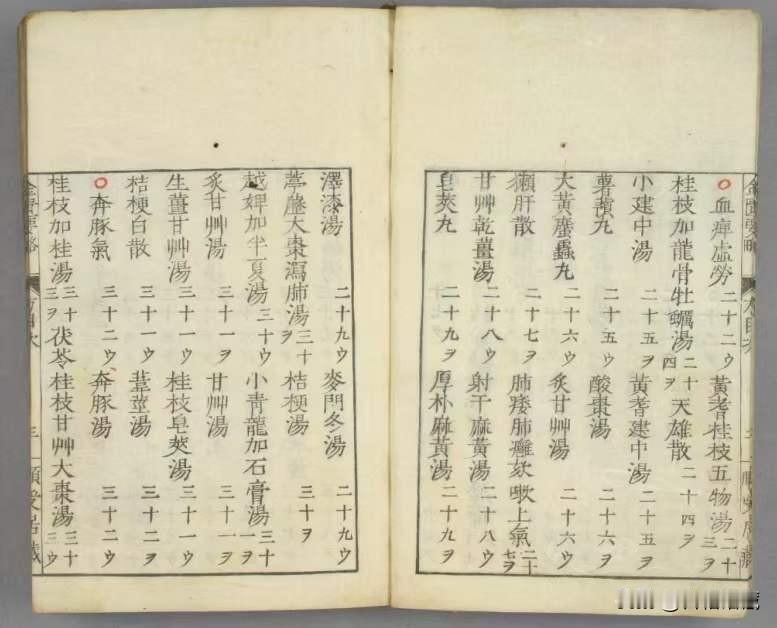 血痺虛勞 二十二ウ 黃耆桂枝五物湯 二十三ヲ
桂枝加龍骨牡蠣湯 二十四ヲ 天雄散 二十四ヲ
小建中湯 二十五ヲ 黃耆建中湯 二十五ヲ
薯蕷丸 二十五ウ 酸棗湯 二十六ヲ
大黃䗪蟲丸 二十六ウ 炙甘艸湯 二十六ウ
獺肝散 二十七ヲ 肺痿肺癰欬嗽上氣 二十七ヲ
甘艸乾薑湯 二十八ウ 射干麻黃湯 二十八ウ
皂莢丸 二十九ヲ 厚朴麻黃湯 二十九ヲ
澤漆湯 二十九ウ 麥門冬湯 二十九ウ
葶藶大棗瀉肺湯 三十ヲ 桔梗湯 三十ヲ
越婢加半夏湯 三十ウ 小青龍加石膏湯 三十一ヲ
炙甘艸湯 三十一ヲ 甘艸湯 三十一ヲ
生薑甘艸湯 三十一ウ 桂枝皂莢湯 三十一ウ
桔梗白散 三十一ウ 葦莖湯 三十二ウ
奔豚氣 三十二ウ 奔豚湯 三十二ウ
桂枝加桂湯 三十三ヲ 茯苓桂枝甘艸大棗湯 三十三ウ
金匱要略 方目次 三 順受居藏